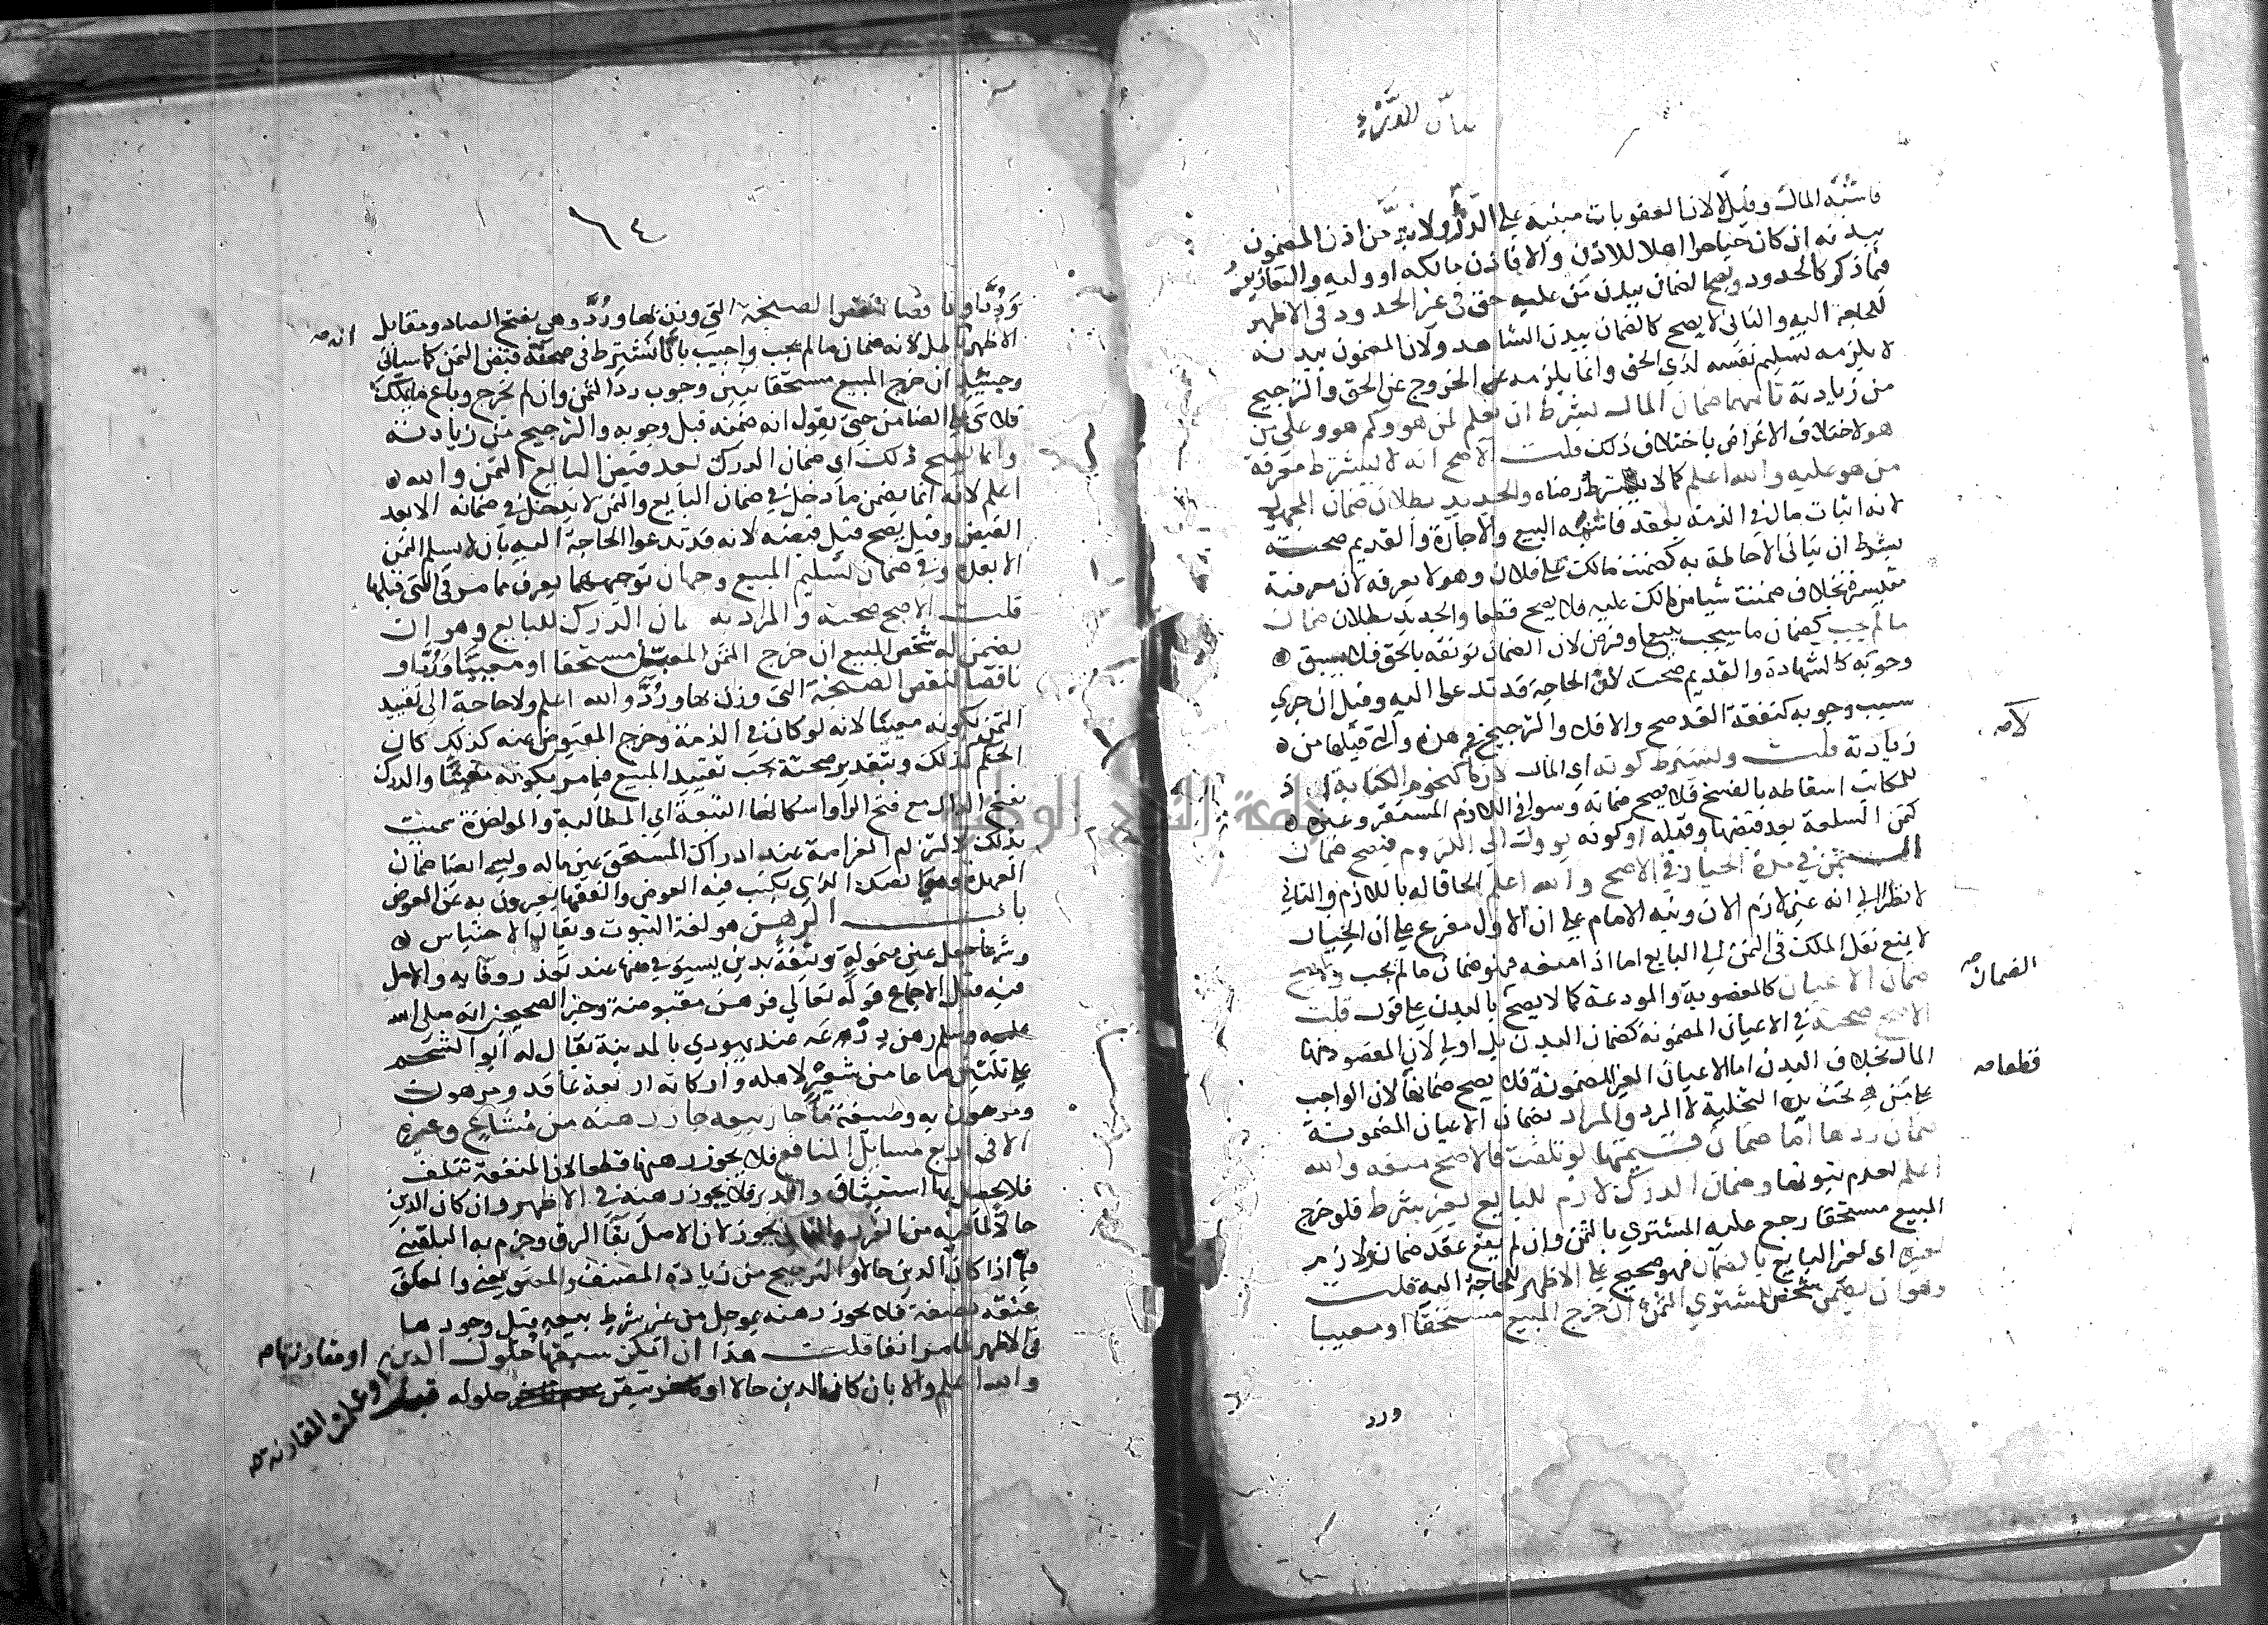 فاشبه المال وقيل لا لان العقوبات مبنية على الدرء ولا بد من اذن المضمون
ببدنه ان كان حيا حرا اهلا للاذن والا فاذن مالكه او وليه والتعازير
فيما ذكر كالحدود ويصح الضمان ببدن من عليه حق في غير الحدود في الاظهر
للحاجة اليه والثاني لا يصح كالضمان ببدن الشاهد ولان المضمون ببدنه
لا يلزمه تسليم نفسه لذي الحق وانما يلزمه الخروج عن الحق والترجيح
من زيادته ثانيهما ضمان المال بشرط ان يعلم لمن هو وكم هو وعلى من
هو لاختلاف الاغراض باختلاف ذلك قلت الاصح انه لا يشترط معرفة
من هو عليه والله اعلم كما لا يشترط رضاه والجديد بطلان ضمان المجهول
لانه اثبات مال في الذمة بعقد فاشبه البيع والاجارة والقديم صحته
بشرط ان يتاتى الاحاطة به كضمنت مالك على فلان وهو لا يعرفه لان معرفته
متيسرة بخلاف ضمنت شيا من مالك عليه فلا يصح قطعا والجديد بطلان ضمان
ما لم يجب كضمان ما سيجب ببيع او قرض لان الضمان توثقة بالحق فلا يسبق
وجوبه كالشهادة والقديم صحته لان الحاجة قد تدعوا اليه وقيل ان جرى
سبب وجوبه كنفقة الغد صح والا فلا والترجيح في هذه والتي قبلها من
زيادته قلت ويشترط كونه اي المال لازما كنجوم الكتابة اذ
لآ صح
للمكاتب اسقاطه بالفسخ فلا يصح ضمانه وسوا في اللازم المستقر وغيره
كثمن السلعة بعد قبضها وقبله او كونه يوول الى اللزوم فيصح ضمان
الثمن في مدة الخيار في الاصح والله اعلم الحاقا له باللازم والثاني
لا نظرا الى انه غير لازم الان ونبه الامام على ان الاول مفرع على ان الخيار
لا يمنع نقل الملك في الثمن الى البايع اما اذا منعه فهو ضمان ما لم يجب ولا يصح
ضمان الاعيان كالمغصوبة والمودعة كما لا يصح بالبدن على قول قلت
الضمان صح
الاصح صحته في الاعيان المضمونة كضمان البدن بل اولى لان المقصود منها
المال بخلاف البدن اما الاعيان الغير المضمونة فلا يصح ضمانها لان الواجب
قطعا صح
على من هي تحت يده التخلية لا الرد والمراد بضمان الاعيان المضمونة
ضمان ردها اما ضمان قيمتها لو تلفت فالاصح منعه والله
اعلم لعدم ثبوتها وضمان الدرك لازم للبايع لغير شرط فلو خرج
المبيع مستحقا رجع عليه المشتري بالثمن وان لم يقع عقد ضمان ولازم
لغيره اى لغير البايع بالضمان فهو صحيح على الاظهر للحاجة اليه قلت
وهو ان يضمن شخص للمشتري الثمن ان خرج المبيع مستحقا او معيبا
ورد
٦٤
ورد او ناقصا لنقص الصنجة التي وزن بها ورد وهي بفتح الصاد ومقابل
الاظهر باطل لانه ضمان ما لم يجب واجيب بانا نشترط في صحته قبض الثمن كما سياتى
انه صح
وحينئذ ان خرج المبيع مستحقا تبين وجوب رد الثمن وان لم يخرج وباع ما يملك
فلا شي على الضامن حتى يقول انه ضمنه قبل وجوبه والترجيح من زيادته
وانما يصح ذلك اي ضمان الدرك بعد قبض البايع الثمن والله
اعلم لانه انما يضمن ما دخل في ضمان البايع والثمن لا يدخل في ضمانه الا بعد
القبض وقيل يصح قبل قبضه لانه قد تدعوا الحاجة اليه بان لا يسلم الثمن
الا بعده وفي ضمان تسليم المبيع وجهان توجيههما يعرف مما مر في التي قبلها
قلت الاصح صحته والمراد به ضمان الدرك للبايع وهو ان
يضمن له شخص المبيع ان خرج الثمن المعين مستحقا او معيبا ورد او
ناقصا لنقص الصنجة التي وزن بها ورد والله اعلم ولا حاجة الى تقييد
الثمن بكونه معينا لانه لو كان في الذمة وخرج المقبوض عنه كذلك كان
الحكم كذلك وبتقدير صحته يجب تقييد المبيع فيما مر بكونه معينا والدرك
بفتح الدال مع فتح الرا واسكانها التبعة اي المطالبة والمواخذة سميت
بذلك لالتزام الغرامة عند ادراك المستحق عين ماله وليس ايضا ضمان
العهدة وهي الصك الذي يكتب فيه العوض والفقها يعبرون به عن العوض
باب الرهن هو لغة الثبوت ويقال الاحتباس
وشرعا جعل عين متمولة وثيقة بدين يستوفى منها عند تعذر وفائه والاصل
فيه قبل الاجماع قوله تعالى فرهن مقبوضة وخبر الصحيحين انه صلى الله
عليه وسلم رهن درعه عند يهودي بالمدينة يقال له ابو الشحم
على ثلثين صاعا من شعير لاهله واركانه اربعة عاقد ومرهون
ومرهون به وصيغة ما جاز بيعه جاز رهنه من مشاع وغيره
الا في اربع مسايل المنافع فلا يجوز رهنها قطعا لان المنفعة تتلف
فلا يحصل بها استيثاق والمدبر فلا يجوز رهنه في الاظهر وان كان الدين
حالا لما فيه من الغرر والثاني يجوز لان الاصل بقا الرق وجزم به البلقيني
فيما اذا كان الدين حالا والترجيح من زيادة المصنف والمعلق
عتقه بصفة فلا يجوز رهنه بموجل من غير شرط بيعه قبل وجودها
في الاظهر لما مر انفا قلت هذا ان امكن سبقها حلول الدين
او مقارنتها صح
والله اعلم والا بان كان الدين حالا او تيقن حلوله قبل
او علم المقارنة صح
جامعة النجاح الوطنية